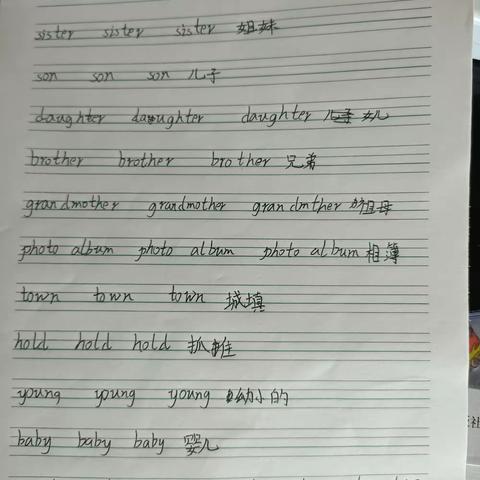 sister sister sister 姐妹
son son son 儿子
daughter daughter daughter 女儿
brother brother brother 兄弟
grandmother grandmother grandmther 祖母
photo album photo album photo album 相簿
town town town 城填
hold hold hold 抓推
young young young 幼小的
baby baby baby 婴儿